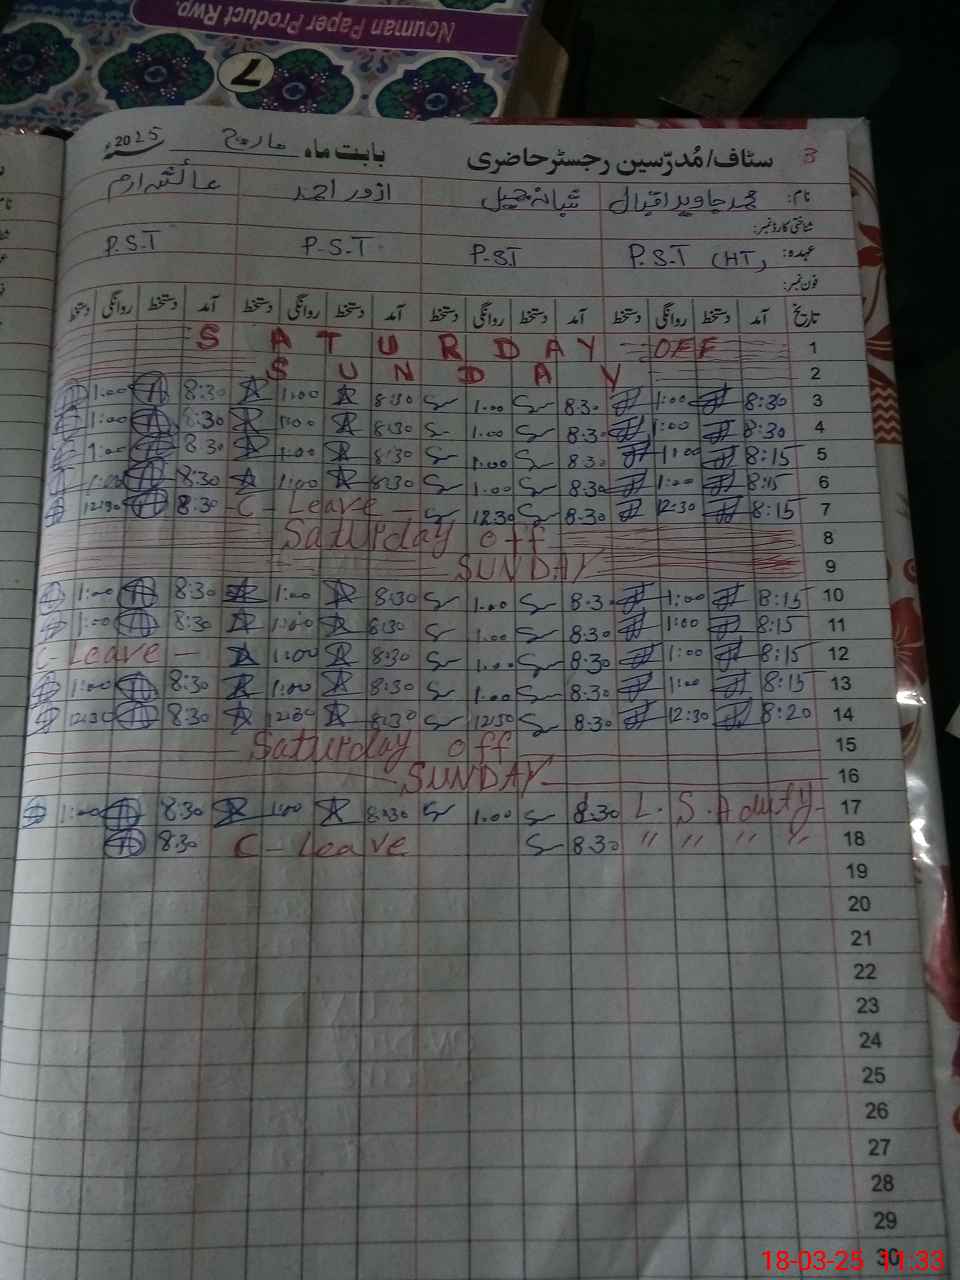 Nouman Paper Product Rwp.
7
سٹاف/مُدرّسین رجسٹر حاضری بابت ماہ مارچ 2025ء
3
نام: محمد جاوید اقبال شبانہ جمیل ازور احمد عائشہ ارم
شناختی کارڈ نمبر:
عہدہ: P.S.T (HT) P.S.T P.S.T P.S.T
فون نمبر:
تاریخ آمد دستخط روانگی دستخط آمد دستخط روانگی دستخط آمد دستخط روانگی دستخط آمد دستخط روانگی دستخط
SATURDAY OFF 1
SUNDAY 2
1:00 8:30 1:00 8:30 1:00 8:30 1:00 8:30 3
1:00 8:30 1:00 8:30 1:00 8:30 1:00 8:30 4
1:00 8:30 1:00 8:30 1:00 8:30 1:00 8:15 5
1:00 8:30 1:00 8:30 1:00 8:30 1:00 8:15 6
12:30 8:30 C-Leave 12:30 8:30 12:30 8:15 7
Saturday off 8
SUNDAY 9
1:00 8:30 1:00 8:30 1:00 8:30 1:00 8:15 10
1:00 8:30 1:00 8:30 1:00 8:30 1:00 8:15 11
C-Leave - 1:00 8:30 1:00 8:30 1:00 8:15 12
1:00 8:30 1:00 8:30 1:00 8:30 1:00 8:15 13
12:30 8:30 12:30 8:30 12:30 8:30 12:30 8:20 14
Saturday off 15
SUNDAY 16
1:00 8:30 1:00 8:30 1:00 8:30 L.S.A duty 17
8:30 C-Leave 8:30 〃 〃 〃 〃 18
19
20
21
22
23
24
25
26
27
28
29
30
18-03-25 11:33